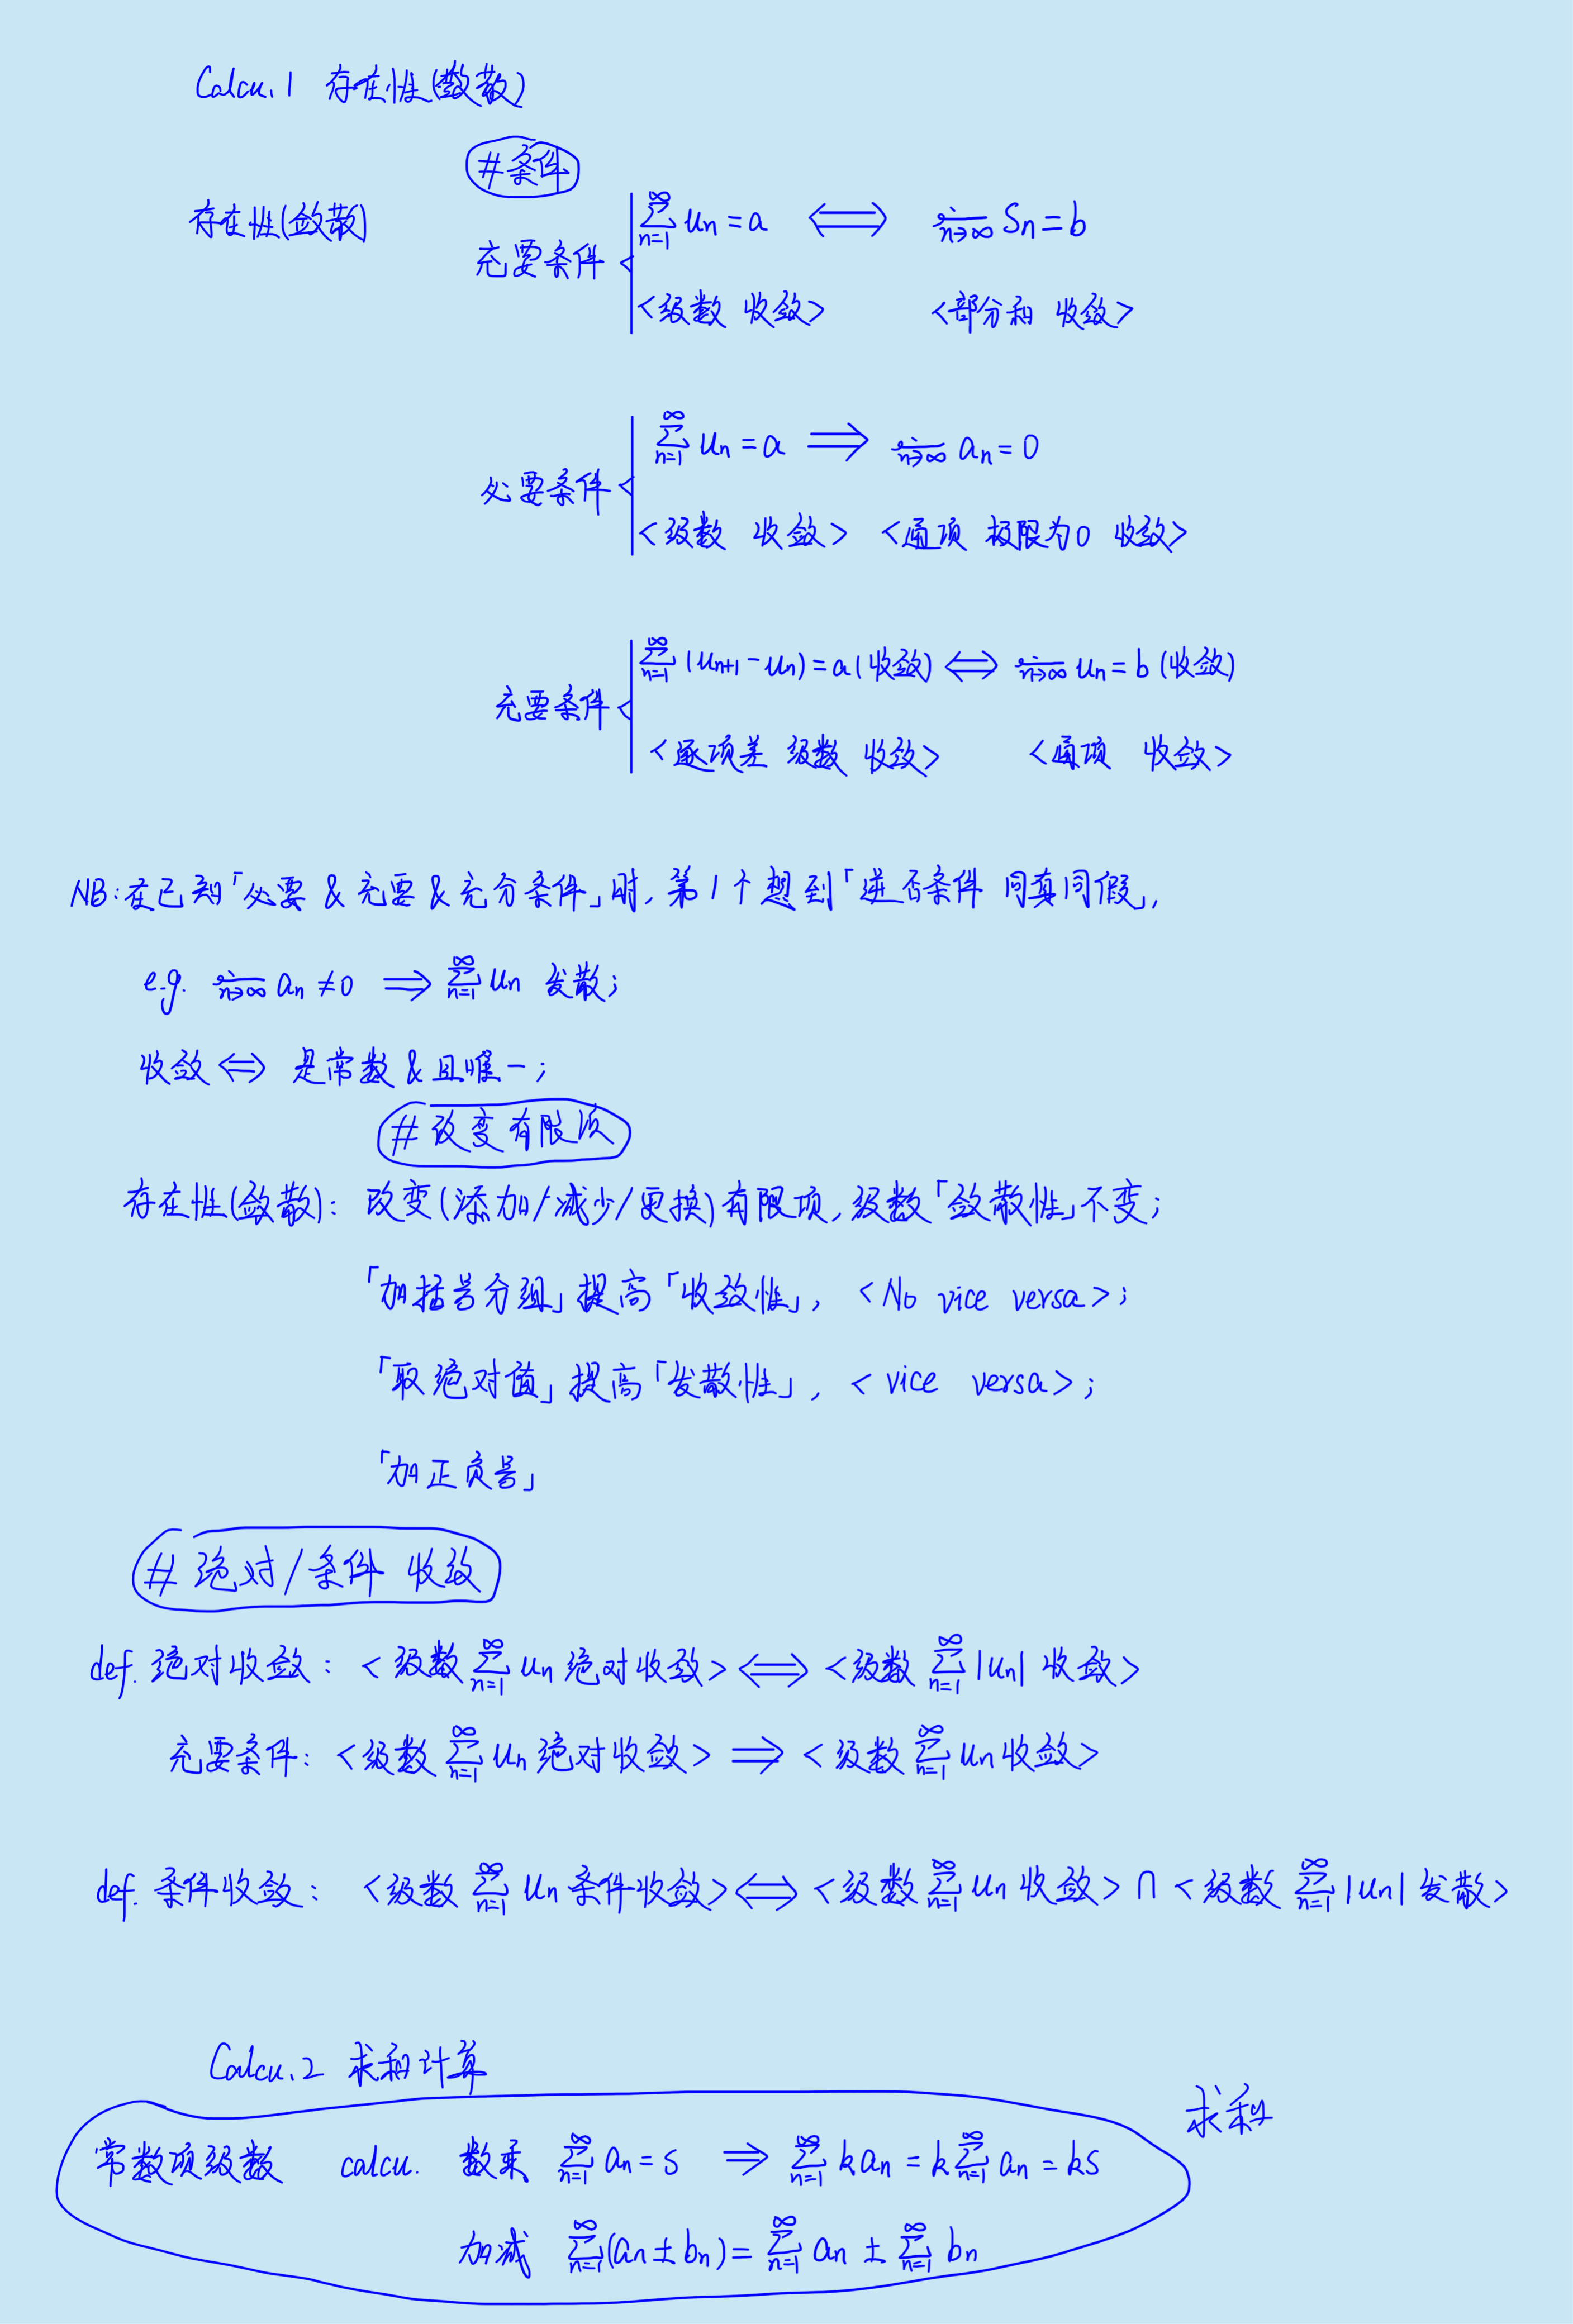 Calcu.1 存在性(敛散)
#条件
存在性(敛散)
充要条件 { ∑_{n=1}^{∞} u_n = a ⟺ lim_{n→∞} S_n = b
<级数 收敛> <部分和 收敛>
必要条件 { ∑_{n=1}^{∞} u_n = a ⟹ lim_{n→∞} a_n = 0
<级数 收敛> <通项 极限为0 收敛>
充要条件 { ∑_{n=1}^{∞} (u_{n+1} - u_n) = a (收敛) ⟺ lim_{n→∞} u_n = b (收敛)
<逐项差 级数 收敛> <通项 收敛>
NB: 在已知「必要 & 充要 & 充分条件」时, 第1个想到「逆否条件 同真同假」,
e.g. lim_{n→∞} a_n ≠ 0 ⟹ ∑_{n=1}^{∞} u_n 发散;
收敛 ⟺ 是常数 & 且唯一;
# 改变有限项
存在性(敛散): 改变(添加/减少/更换)有限项, 级数「敛散性」不变;
「加括号分组」提高「收敛性」, <No vice versa>;
「取绝对值」提高「发散性」, <vice versa>;
「加正负号」
# 绝对/条件 收敛
def. 绝对收敛: <级数 ∑_{n=1}^{∞} u_n 绝对收敛> ⟺ <级数 ∑_{n=1}^{∞} |u_n| 收敛>
充要条件: <级数 ∑_{n=1}^{∞} u_n 绝对收敛> ⟹ <级数 ∑_{n=1}^{∞} u_n 收敛>
def. 条件收敛: <级数 ∑_{n=1}^{∞} u_n 条件收敛> ⟺ <级数 ∑_{n=1}^{∞} u_n 收敛> ∩ <级数 ∑_{n=1}^{∞} |u_n| 发散>
Calcu.2 求和计算
求和
常数项级数 calcu. 数乘 ∑_{n=1}^{∞} a_n = s ⟹ ∑_{n=1}^{∞} k a_n = k ∑_{n=1}^{∞} a_n = ks
加减 ∑_{n=1}^{∞} (a_n ± b_n) = ∑_{n=1}^{∞} a_n ± ∑_{n=1}^{∞} b_n